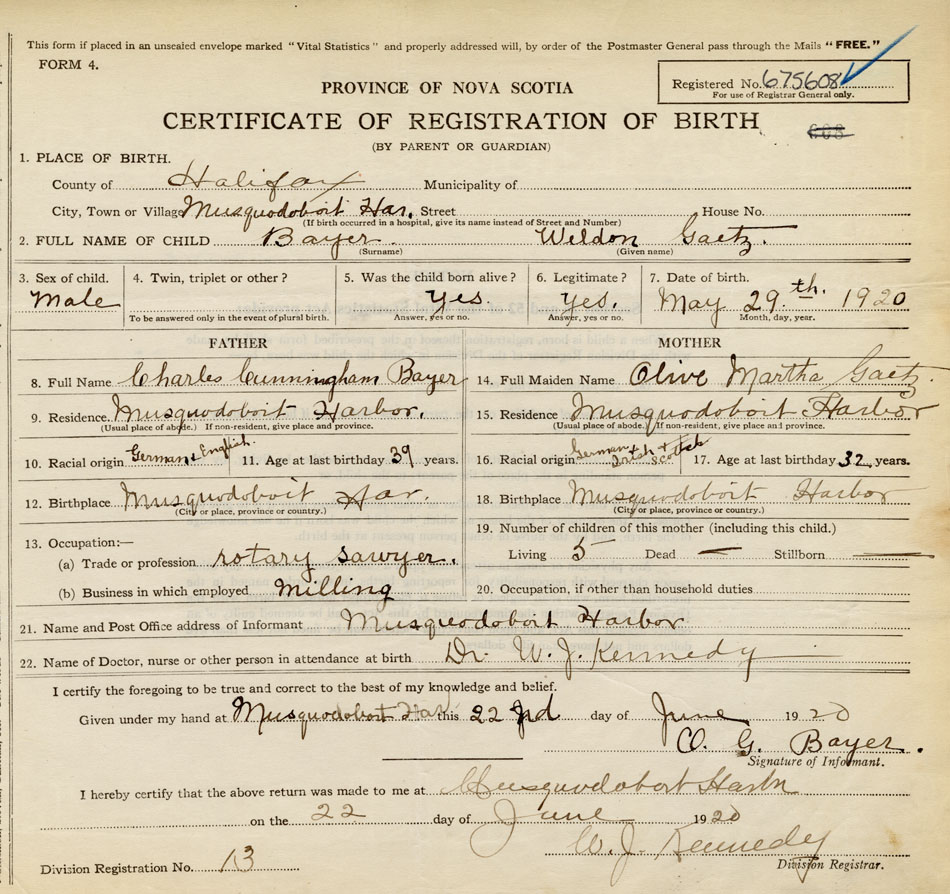 This form if placed in an unsealed envelope marked "Vital Statistics" and properly addressed will, by order of the Postmaster General pass through the Mails "FREE."
FORM 4.
Registered No. 675608
For use of Registrar General only.
PROVINCE OF NOVA SCOTIA
CERTIFICATE OF REGISTRATION OF BIRTH
608
(BY PARENT OR GUARDIAN)
1. PLACE OF BIRTH.
County of Halifax Municipality of
City, Town or Village Musquodoboit Har. Street House No.
(If birth occurred in a hospital, give its name instead of Street and Number)
2. FULL NAME OF CHILD Bayer. Weldon Gaetz.
(Surname) (Given name)
3. Sex of child. 4. Twin, triplet or other? 5. Was the child born alive? 6. Legitimate? 7. Date of birth.
Male Yes. Yes. May 29.th. 1920
To be answered only in the event of plural birth. Answer, yes or no. Answer, yes or no. Month, day, year.
FATHER MOTHER
8. Full Name Charles Cunningham Bayer 14. Full Maiden Name Olive Martha Gaetz.
9. Residence. Musquodoboit Harbor. 15. Residence Musquodoboit Harbor
(Usual place of abode.) If non-resident, give place and province. (Usual place of abode.) If non-resident, give place and province.
10. Racial origin German & English. 11. Age at last birthday 39 years. 16. Racial origin German & Scotch 17. Age at last birthday 32 years.
12. Birthplace Musquodoboit Har. 18. Birthplace Musquodoboit Harbor
(City or place, province or country.) (City or place, province or country.)
13. Occupation:— 19. Number of children of this mother (including this child.)
(a) Trade or profession rotary sawyer. Living 5 Dead — Stillborn —
(b) Business in which employed Milling 20. Occupation, if other than household duties
21. Name and Post Office address of Informant Musquodoboit Harbor
22. Name of Doctor, nurse or other person in attendance at birth Dr. W. J. Kennedy
I certify the foregoing to be true and correct to the best of my knowledge and belief.
Given under my hand at Musquodoboit Har this 22 day of June 1920
O. G. Bayer.
Signature of Informant.
I hereby certify that the above return was made to me at Musquodoboit Harbor
on the 22 day of June 1920
W. J. Kennedy
Division Registrar.
Division Registration No. 13